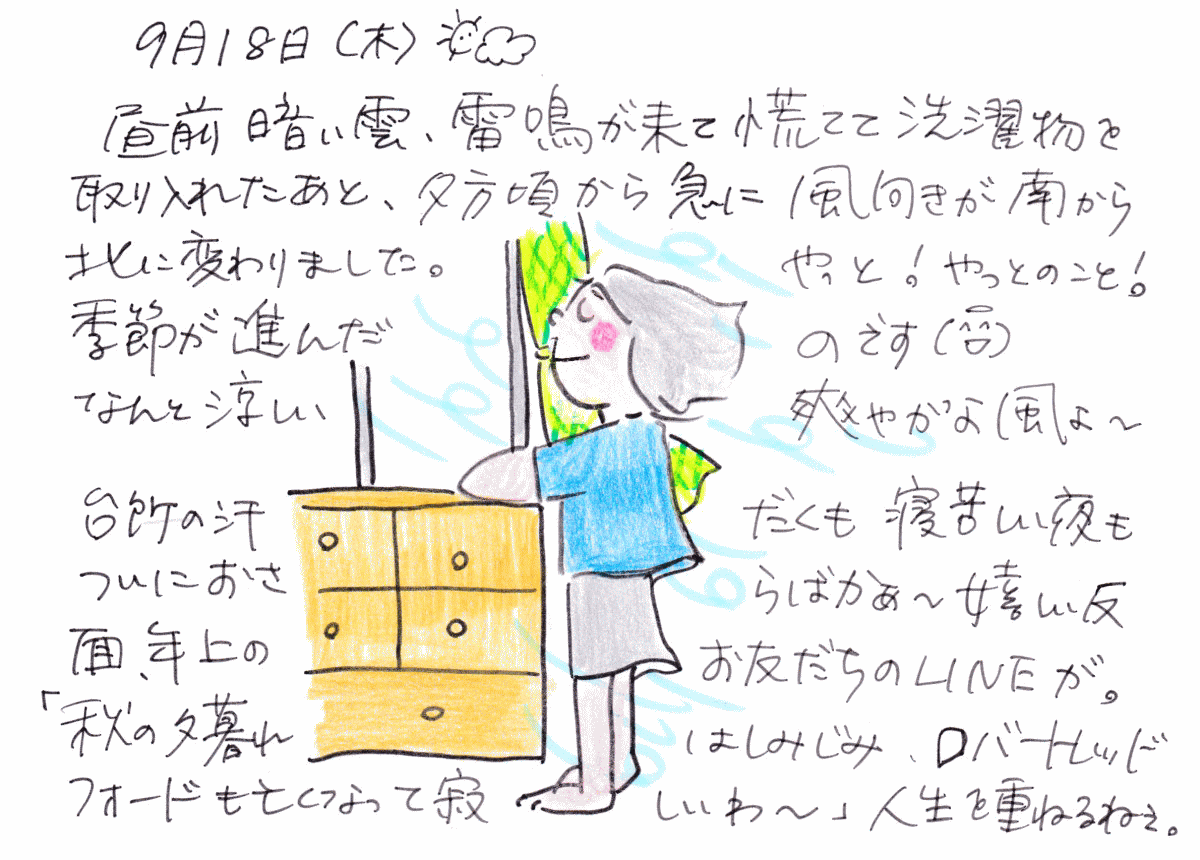 9月18日(木)
昼前 暗い雲、雷鳴が来て慌てて洗濯物を
取り入れたあと、夕方頃から急に風向きが南から
北に変わりました。 やっと！やっとのこと！
季節が進んだ のです
なんと涼しい 爽やかな風よ〜
台所の汗 だくも 寝苦しい夜も
ついにおさ らばかぁ〜嬉しい反
面、年上の お友だちのLINEが。
「秋の夕暮れ はしみじみ、ロバートレッド
フォードも亡くなって寂 しいわ〜」人生を重ねるねぇ。